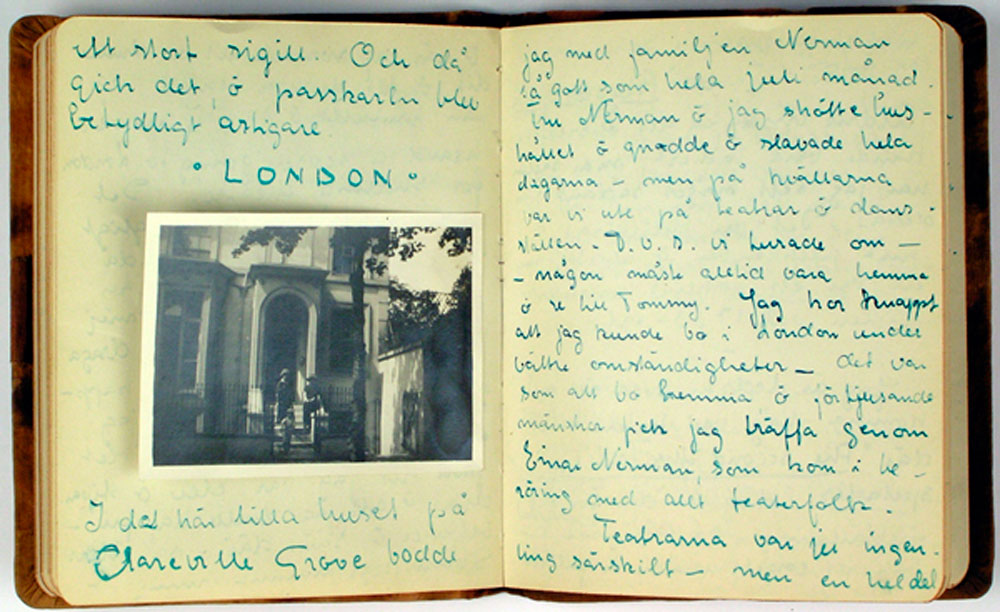 ett stort sigill. Och då
gick det, o passkarln blev
betydligt artigare.
• LONDON •
I det här lilla huset på
Clareville Grove bodde
jag med familjen Nerman
så gott som hela juli månad.
Fru Nerman o jag skötte hus-
hållet o gnodde o slavade hela
dagarna – men på kvällarna
var vi ute på teatrar o dans-
ställen – D.v.s. vi turade om –
– någon måste alltid vara hemma
o se till Tommy. Jag tror knappt
att jag kunde bo i London under
bättre omständigheter – det var
som att bo hemma o förtjusande
mänskor fick jag träffa genom
Einar Nerman, som kom i be-
röring med allt teaterfolk.
Teatrarna var ju ingen-
ting särskilt – men en hel del